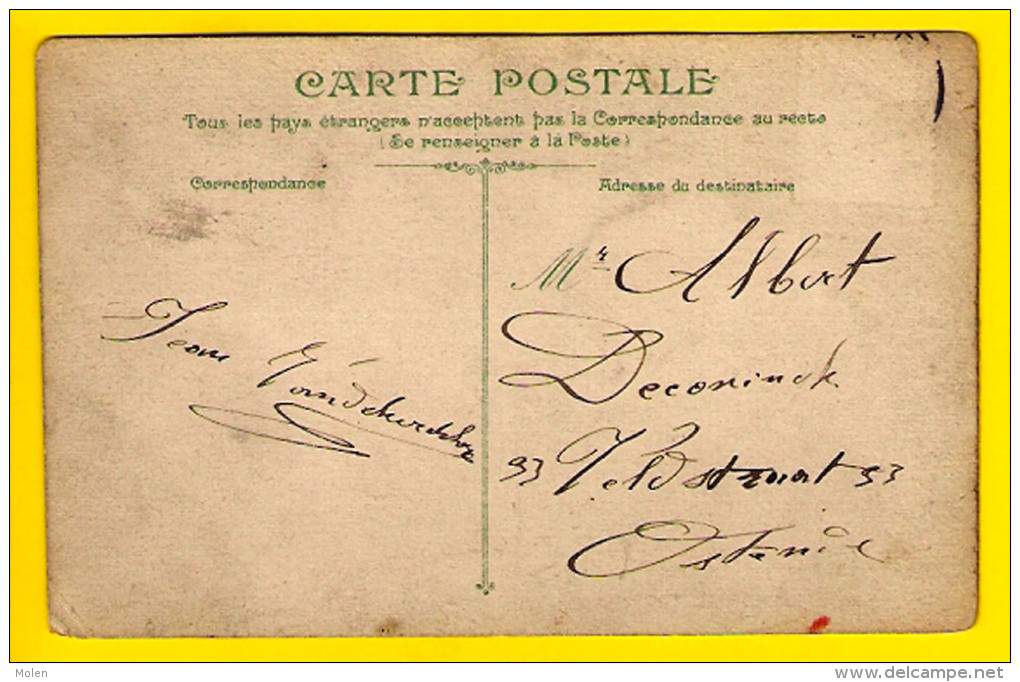 CARTE POSTALE
Tous les pays étrangers n'acceptent pas la Correspondance au recto
(Se renseigner à la Poste)
Correspondance
Adresse du destinataire
Jean
Mr. Albert
Deconinck
93 Veldstraat 93
Ostende
Molen
www.delcampe.net